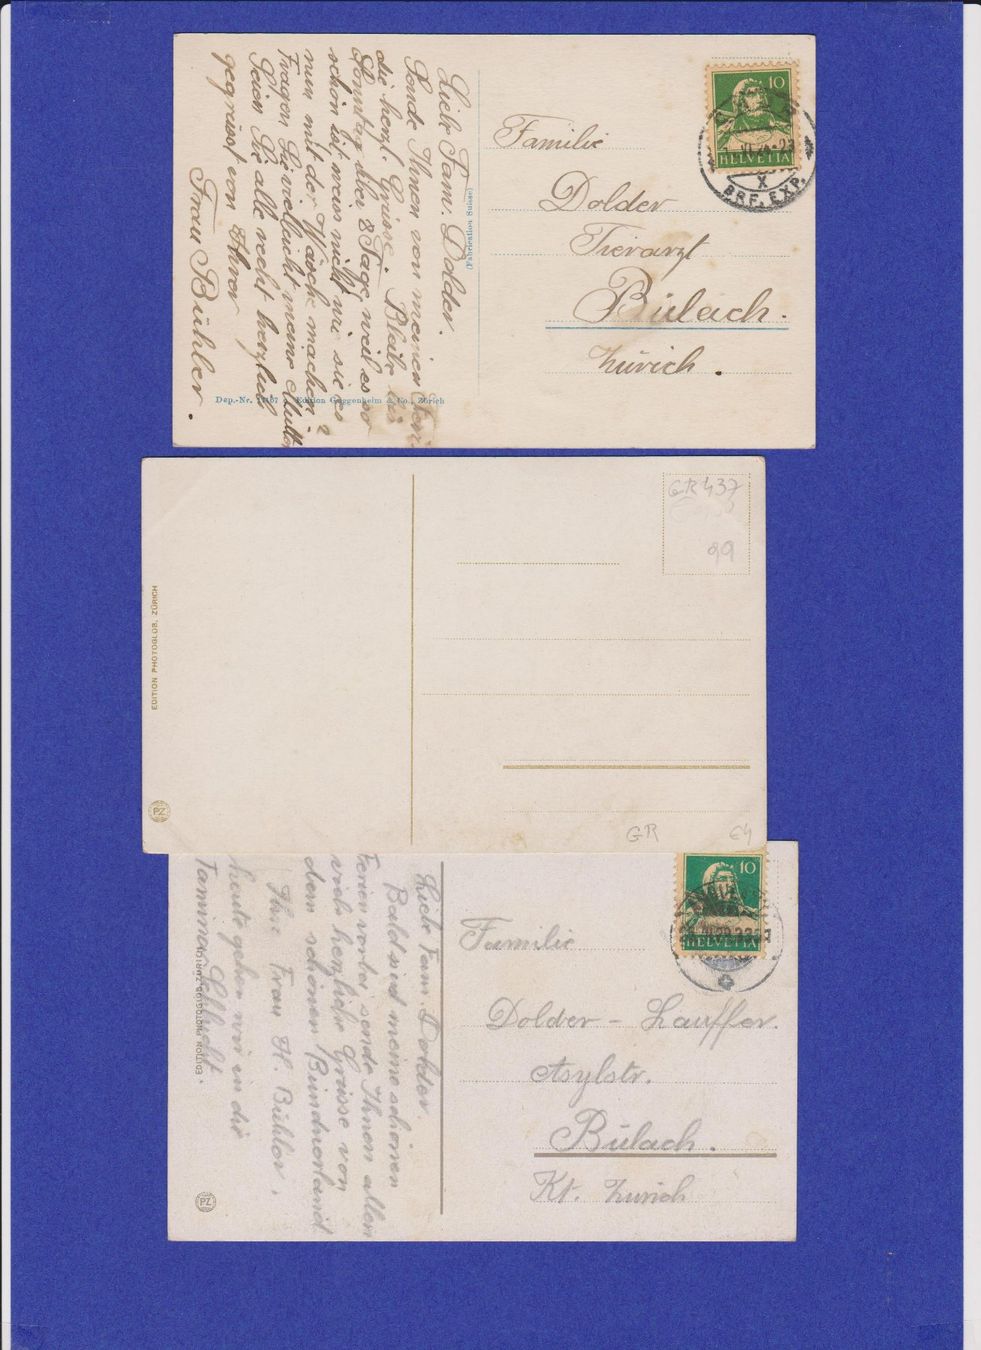 Liebe Fam. Dolder.
Sende Ihnen von meinen Ferien
die herzl. Grüsse. Bleibe bis
Sonntag über 8 Tage, weil es so
schön ist, weiss nicht wie sie es
nun mit der Wäsche machen?
Fragen Sie vielleicht meine Mutter
Seien Sie alle recht herzlich
gegrüsst von Ihrer
Frau Bühler.
Dep.-Nr. Edition Guggenheim & Co., Zürich
(Fabrication Suisse)
10
HELVETIA
X
BRF. EXP.
Familie
Dolder
Tierarzt
Bülach.
Zürich.
EDITION PHOTOGLOB, ZÜRICH
PZ
GR 437
99
GR
€4
Liebe Fam. Dolder.
Bald sind meine schönen
Ferien vorbei, sende Ihnen allen
viele herzliche Grüsse von
dem schönen Bündnerland.
Ihre Frau H. Bühler.
heute gehen wir in die
Taminaschlucht.
EDITION PHOTOGLOB ZÜRICH
PZ
10
HELVETIA
Familie
Dolder - Lauffer.
Asylstr.
Bülach.
Kt. Zürich